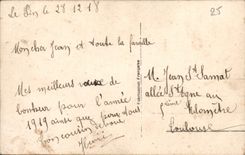 Le Pin le 28 12 18
25
Mon cher Jean et toute la famille
Mes meilleurs vœux de
bonheur pour l'année
1919 ainsi que pour tous
ton cousin
Henri
M. Jean St Sarnat
allée St
Toulouse